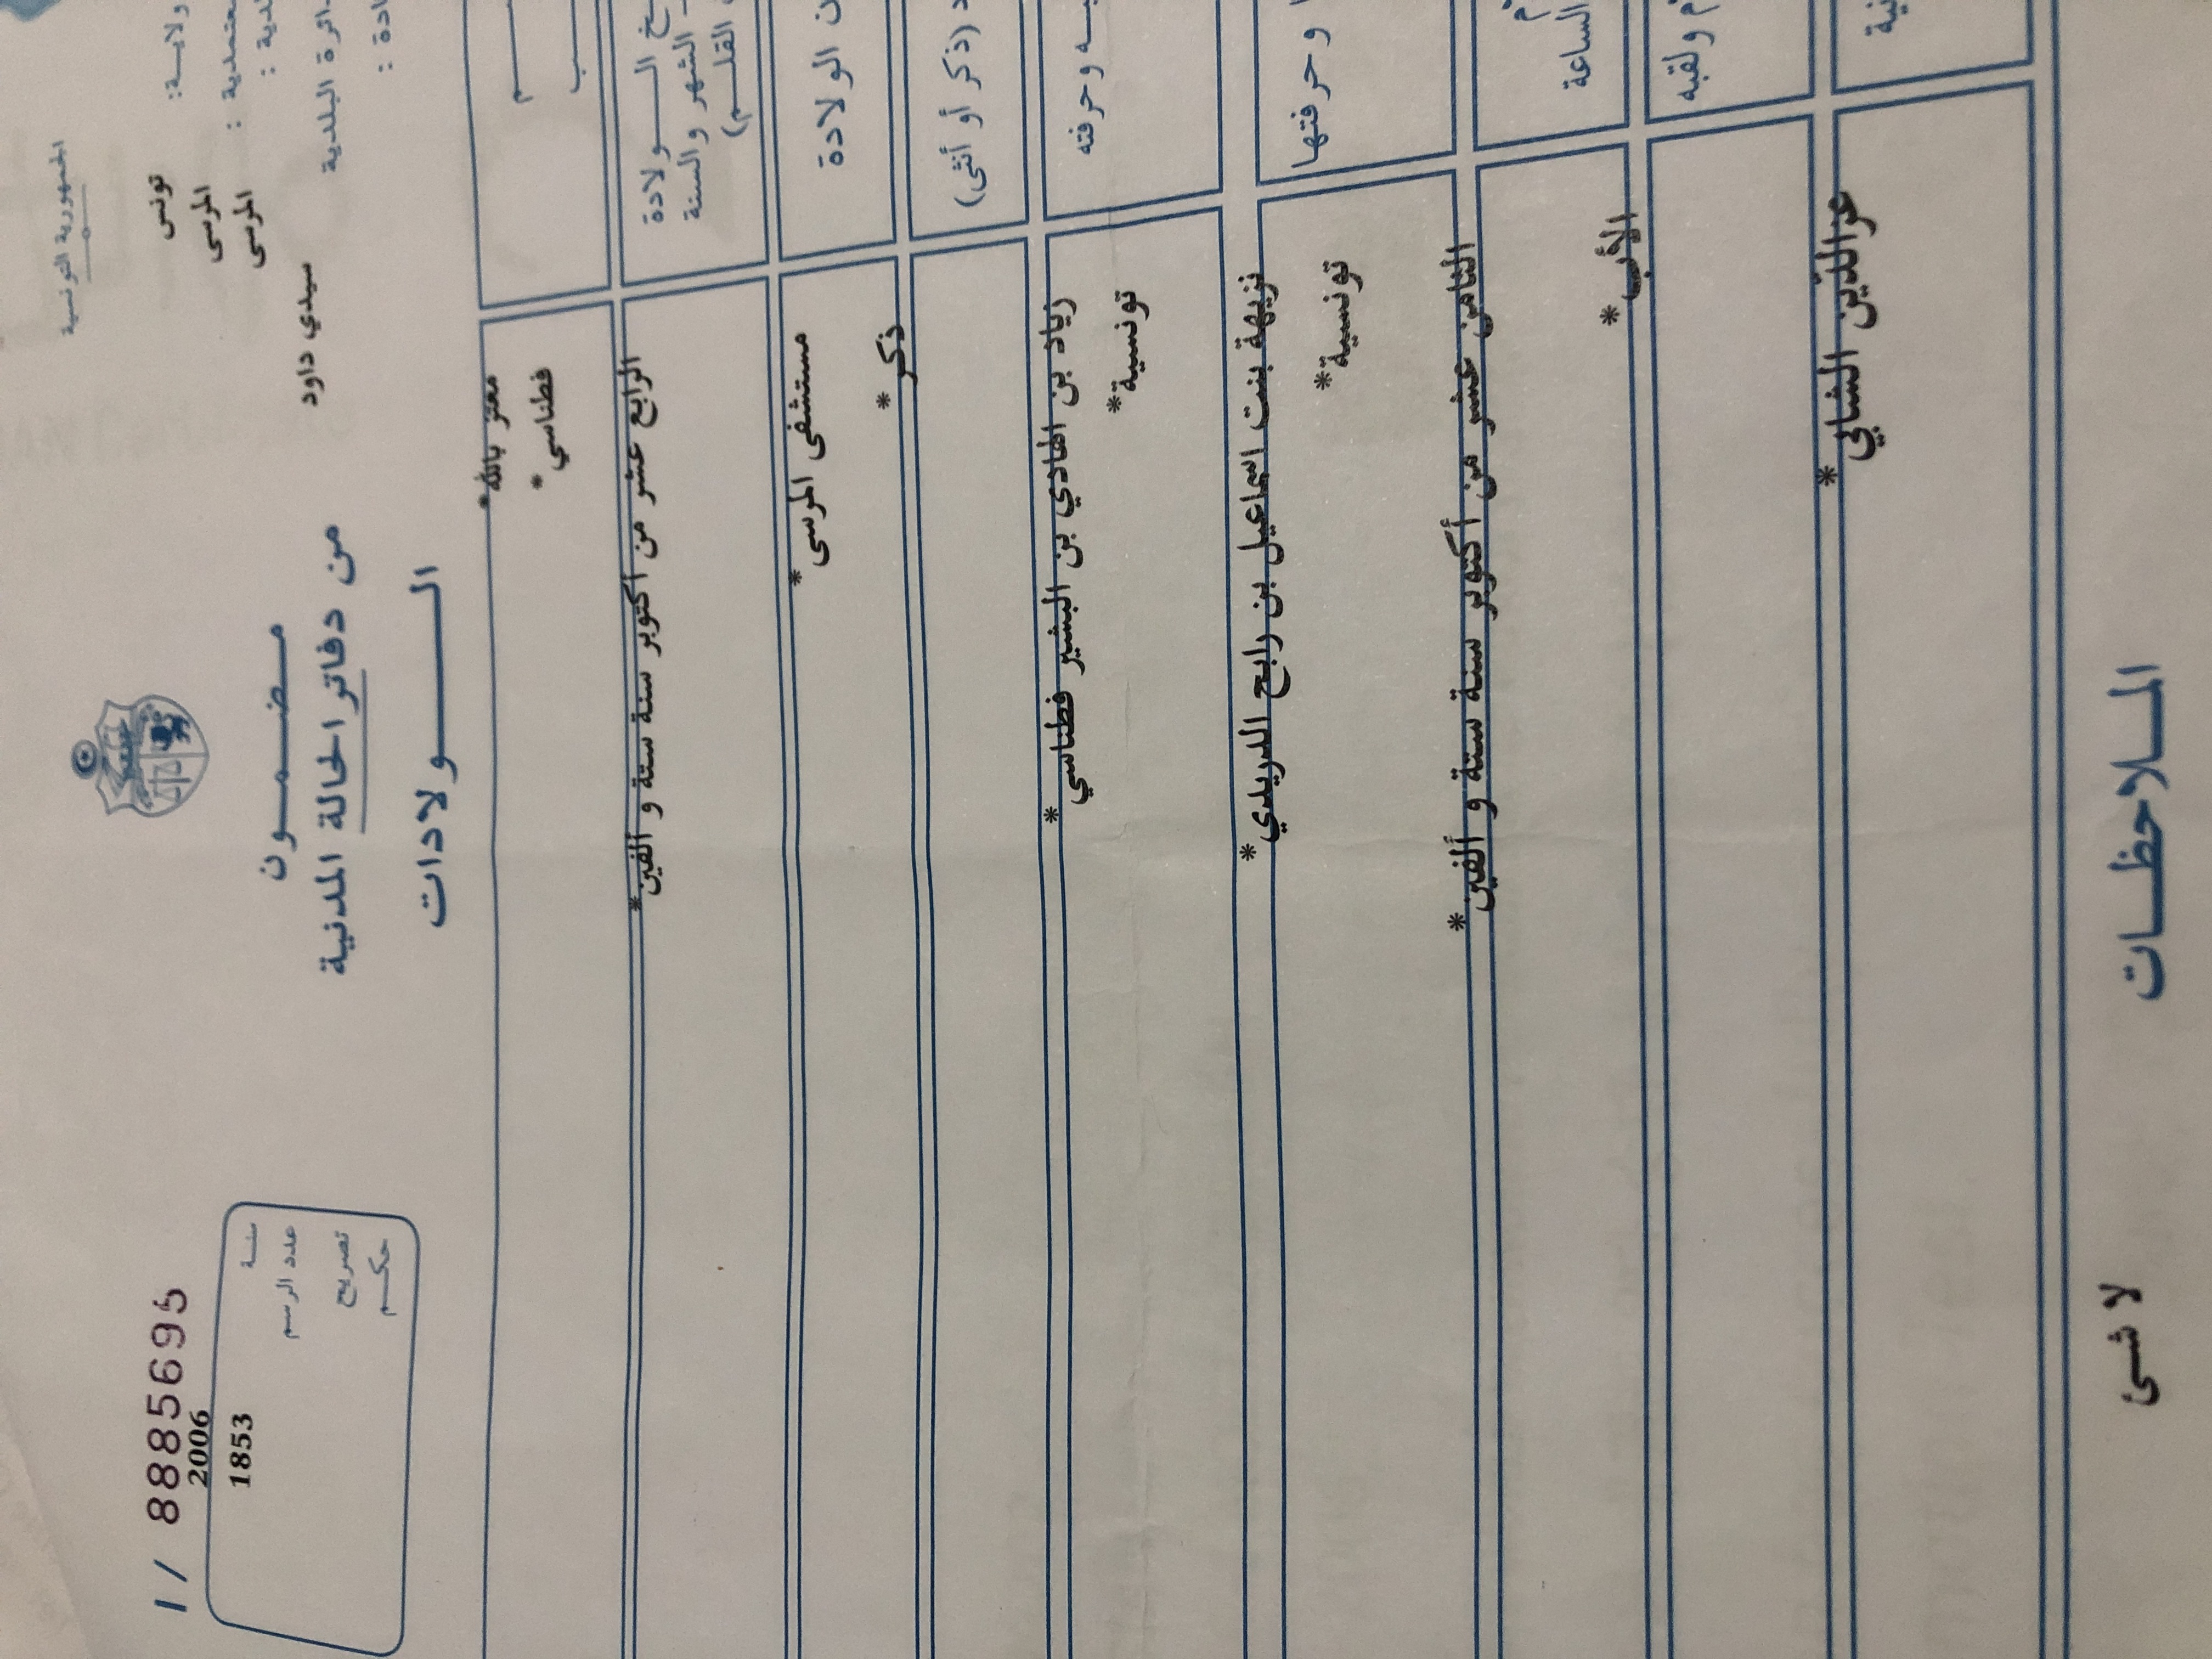 الجمهورية التونسية
ولايـة: تونس
المرسى
المرسى
دائرة البلدية سيدي داود
1/ 8885695
2006
1853
سنـة
عدد الرسم
تصريح
حكـم
مـضـمـون
من دفاتر الحالة المدنية
الـولادات
معتز بالله *
فطناسي *
الـولادة
الشهر والسنة
القلـم)
الرابع عشر من أكتوبر سنة ستة و ألفين *
الولادة
مستشفى المرسى *
(ذكر أو أنثى)
ذكر *
وحرفته
زياد بن الهادي بن البشير فطناسي *
تونسية *
وحرفتها
نزيهة بنت اسماعيل بن رابح الدريدي *
تونسية *
الساعة
الثامن عشر من أكتوبر سنة ستة و ألفين *
ولقبه
الأب *
عزالدين الشابي *
المـلاحظـات
لا شىء